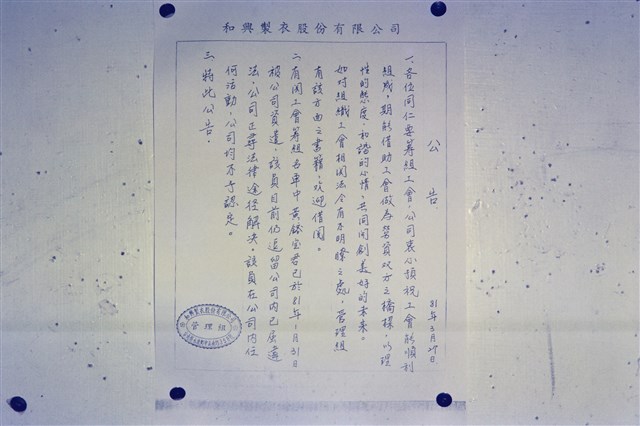 和興製衣股份有限公司
公告
81年3月27日
一、各位同仁要籌組工會，公司衷心預祝工會能順利
組成，期能借助工會做為勞資双方之橋樑，以理
性的態度，和諧的心情，共同開創美好的未來。
如対組織工會相関法令有不明瞭之處，管理組
有該方面之書籍，欢迎借閱。
二、有関工會籌組名單中黃 君已於81年1月31日
被公司資遣，該員目前仍逗留公司內已屬違
法，公司正尋法律途徑解決。該員在公司內任
何活動，公司均不予認定。
三、特此公告。
和興製衣股份有限公司
管理組